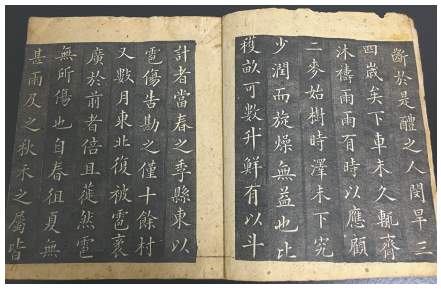 斷於是醴之人閔旱三
四歲矣下車未久輒齊
沐禱雨雨有時以應顧
二麥始樹時澤未下究
少潤而旋燥無益也比
穫畝可數升鮮有以斗
計者當春之季縣東以
雹傷告勘之僅十餘村
又數月東北復被雹袤
廣於前者倍且蓰然雹
無所傷也自春徂夏無
甚雨及之秋禾之屬皆